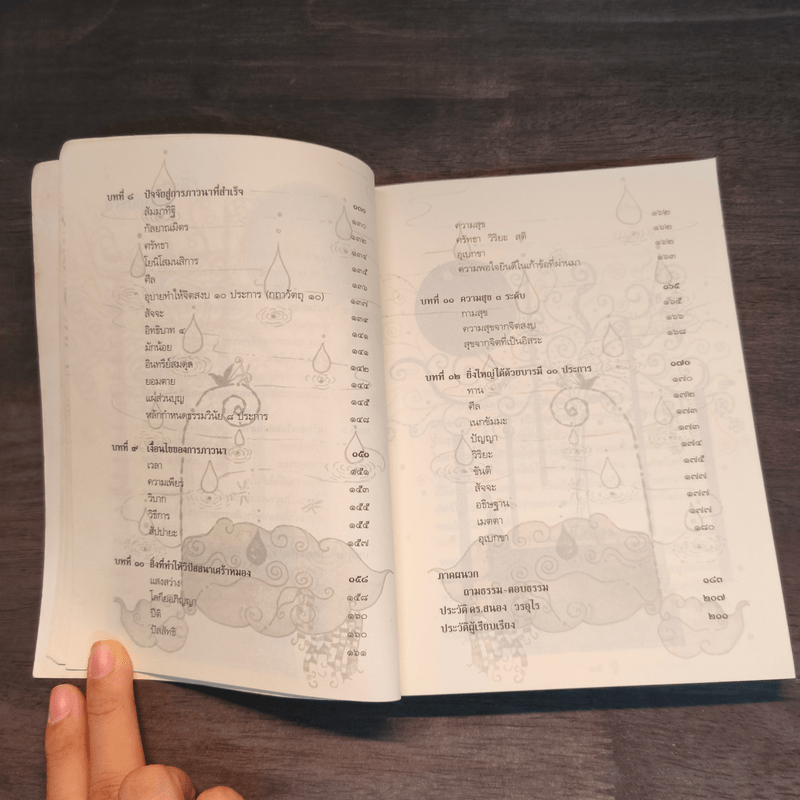 บทที่ ๘ ปัจจัยสู่การภาวนาที่สำเร็จ ๑๓๐
สัมมาทิฐิ ๑๓๐
กัลยาณมิตร ๑๓๒
ศรัทธา ๑๓๔
โยนิโสมนสิการ ๑๓๕
ศีล ๑๓๖
อุบายทำให้จิตสงบ ๑๐ ประการ (กถาวัตถุ ๑๐) ๑๓๗
สัจจะ ๑๓๙
อิทธิบาท ๔ ๑๔๑
มักน้อย ๑๔๑
อินทรีย์สมดุล ๑๔๒
ยอมตาย ๑๔๔
แผ่ส่วนบุญ ๑๔๕
หลักกำหนดธรรมวินัย ๘ ประการ ๑๔๘
บทที่ ๙ เงื่อนไขของการภาวนา ๑๕๐
เวลา ๑๕๑
ความเพียร ๑๕๓
วิบาก ๑๕๕
วิธีการ ๑๕๕
สัปปายะ ๑๕๗
บทที่ ๑๐ สิ่งที่ทำให้วิปัสสนาเศร้าหมอง ๑๕๘
แสงสว่าง ๑๕๘
โลกียอภิญญา ๑๖๐
ปีติ ๑๖๐
ปัสสัทธิ ๑๖๑
ความสุข ๑๖๒
ศรัทธา วิริยะ สติ ๑๖๒
อุเบกขา ๑๖๒
ความพอใจยินดีในเก้าข้อที่ผ่านมา ๑๖๓
บทที่ ๑๑ ความสุข ๓ ระดับ ๑๖๕
กามสุข ๑๖๕
ความสุขจากจิตสงบ ๑๖๖
สุขจากจิตที่เป็นอิสระ ๑๖๘
บทที่ ๑๒ ยิ่งใหญ่ได้ด้วยบารมี ๑๐ ประการ ๑๗๐
ทาน ๑๗๐
ศีล ๑๗๒
เนกขัมมะ ๑๗๓
ปัญญา ๑๗๓
วิริยะ ๑๗๔
ขันติ ๑๗๕
สัจจะ ๑๗๗
อธิษฐาน ๑๗๗
เมตตา ๑๗๗
อุเบกขา ๑๘๐
ภาคผนวก
ถามธรรม-ตอบธรรม ๑๘๓
ประวัติ ดร.สนอง วรอุไร ๒๐๗
ประวัติผู้เรียบเรียง ๒๑๑